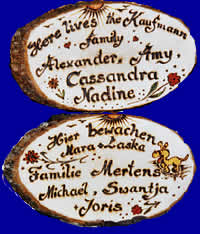 Here lives the Kaufmann
family
Alexander, Amy,
Cassandra
Nadine.
Hier bewachen
Mara + Laska
Familie Mertens
Michael, Swantja
+ Joris